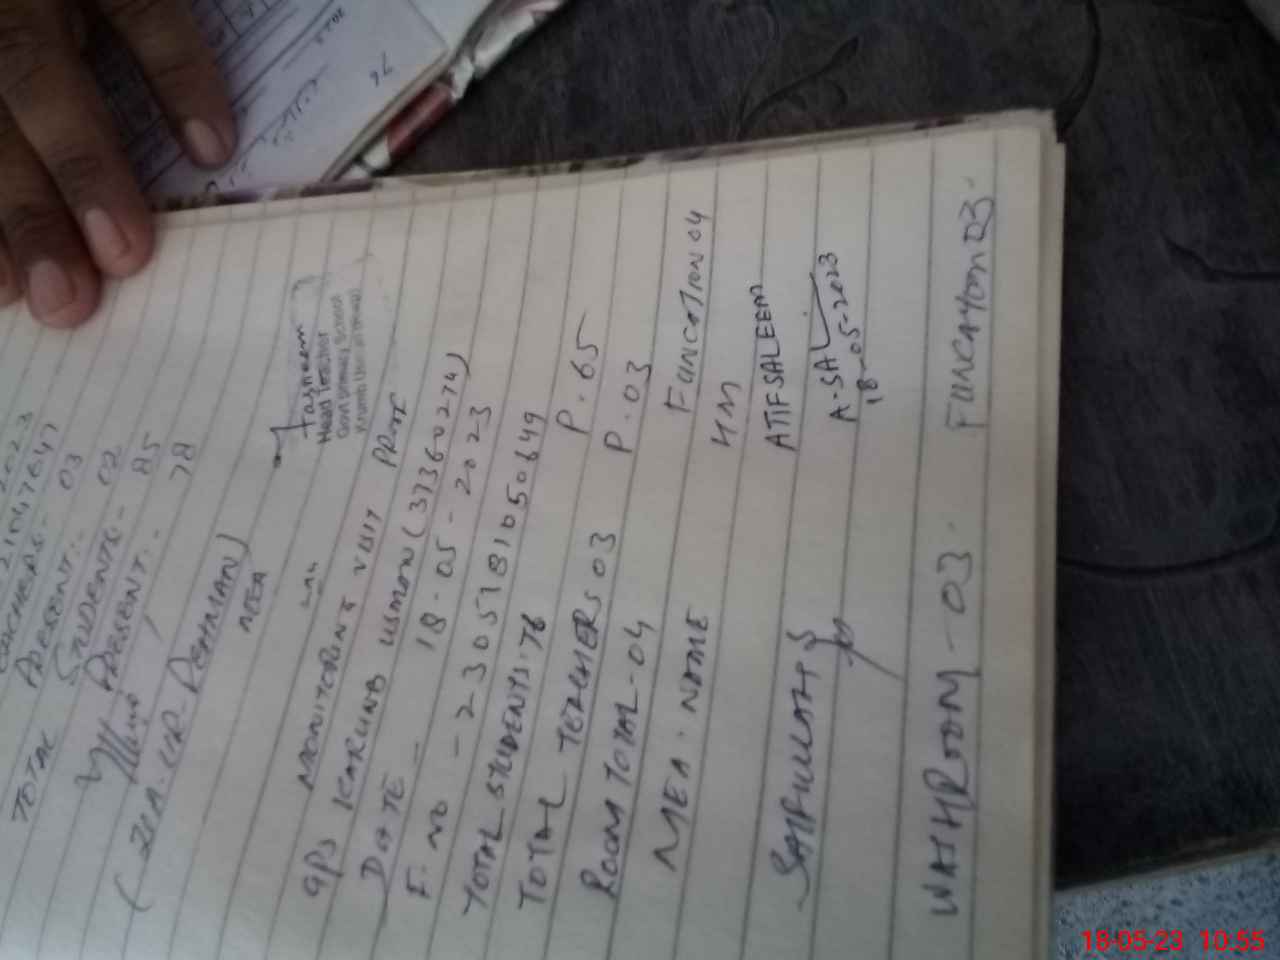 2023
2104 47647
TEACHERS - 03
TOTAL PRESENT:- 02
STUDENTS - 85
PRESENT:- 78
(ZIA-UR-REHMAN)
MEA
Tasneem
Head Teacher
Govt Primary School
MONITORING VISIT PROF
GPS KARUNB USMAN (37360274)
DATE - 18-05-2023
F. NO - 2305181050649
TOTAL STUDENTS. 76 P. 65
TOTAL TETCHERS 03 P. 03
ROOM TOTAL-04 FUNCATION 04
MEA. NAME HM
ATIF SALEEM
SAIFULLAH A-SAL
18-05-2023
WASHROOM - 03. FUNCATION 03
76
18-05-23 10:55